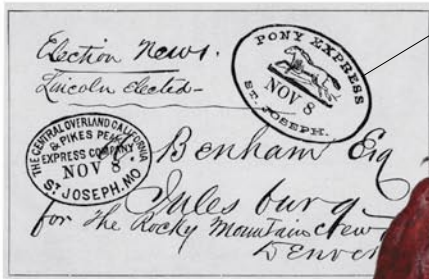 Election News.
Lincoln elected—
PONY EXPRESS
NOV 8
ST. JOSEPH.
THE CENTRAL OVERLAND CALIFORNIA
& PIKES PEAK
EXPRESS COMPANY
NOV 8.
ST JOSEPH, MO
Benham Esq
Julesburg
for The Rocky Mountain
Denver